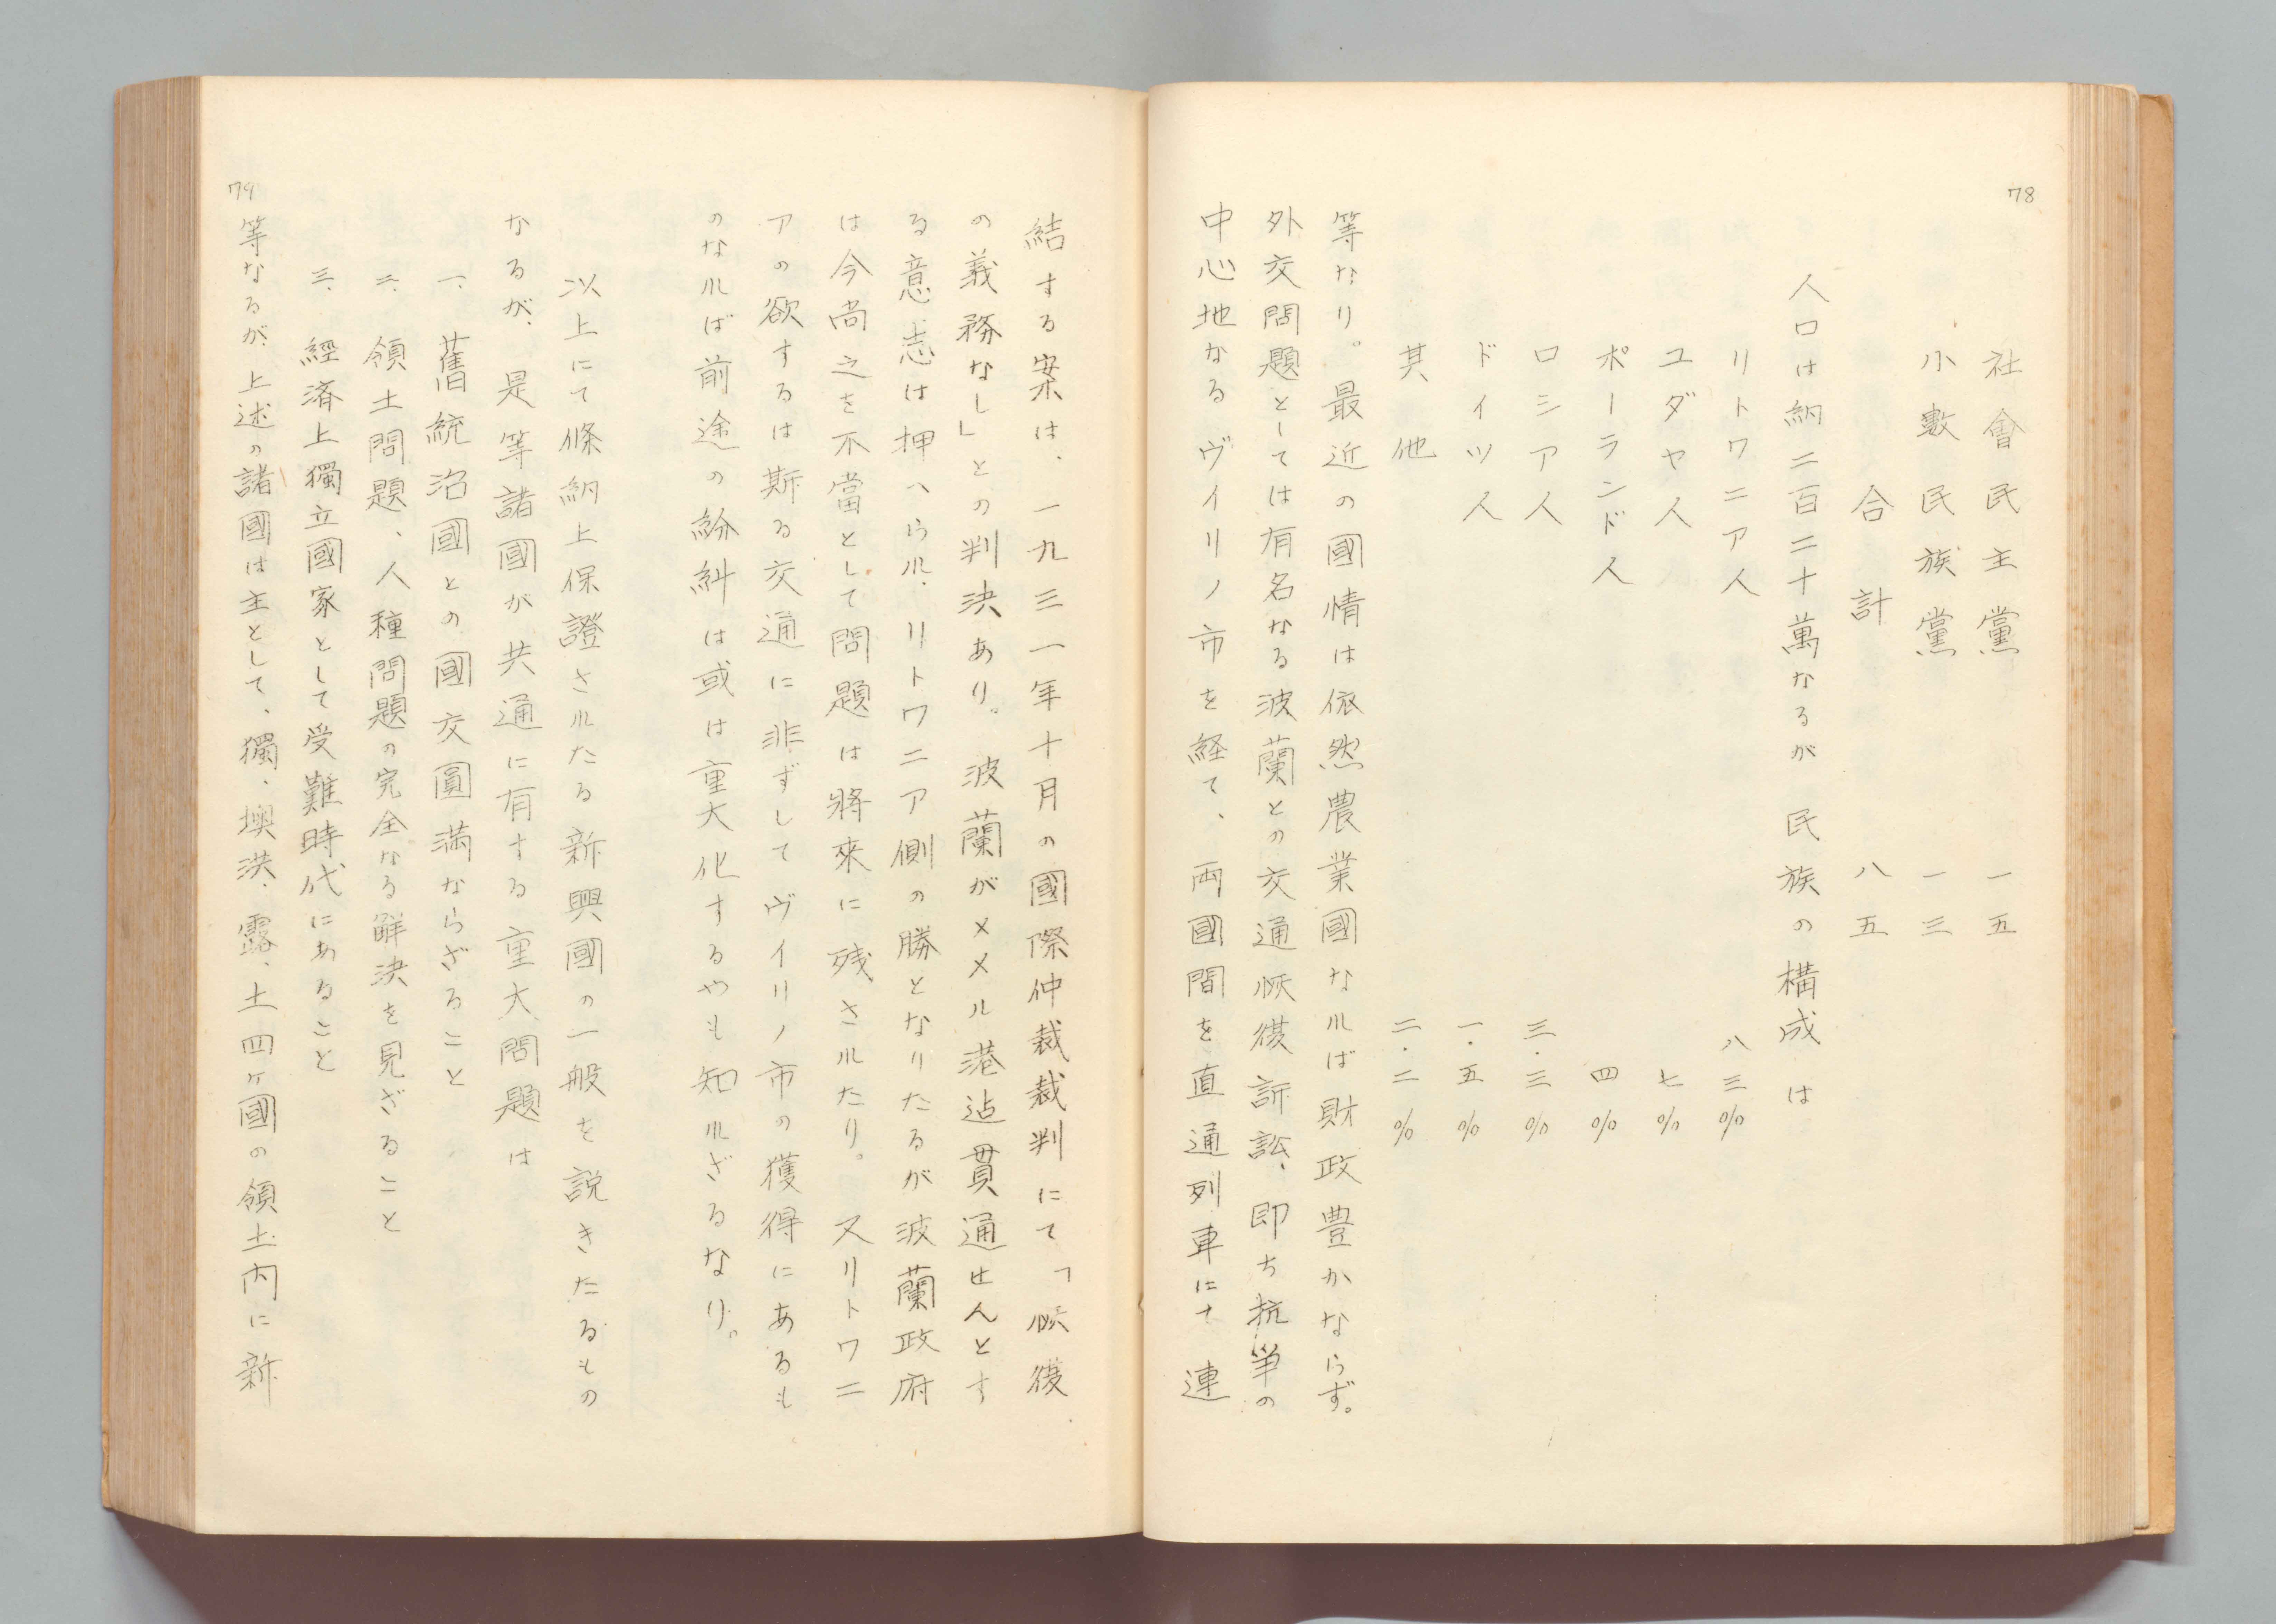 78
社會民主黨 一五
小數民族黨 一三
合計 八五
人口は納二百二十萬なるが 民族の構成は
リトワニア人 八三%
ユダヤ人 七%
ポーランド人 四%
ロシア人 三・三%
ドイツ人 一・五%
其他 二・二%
等なり。最近の國情は依然農業國なれば財政豊かならず。
外交問題としては有名なる波蘭との交通恢復訴訟、即ち抗爭の
中心地なるヴイリノ市を経て、両國間を直通列車にナ連
結する案は、一九三一年十月の國際仲裁裁判にて「恢復
の義務なし」との判決あり。波蘭がメメル港迠貫通せんとす
る意志は押へられ、リトワニア側の勝となりたるが波蘭政府
は今尚之を不當として問題は將來に残されたり。又リトワニ
アの欲するは斯る交通に非ずして ヴイリノ市の獲得にあるも
のなれば前途の紛糾は或は重大化するやも知れざるなり。
以上にて條納上保證されたる新興國の一般を説きたるもの
なるが、是等諸國が共通に有する重大問題は
一、舊統治國との國交圓満ならざること
二、領土問題、人種問題の完全なる解決を見ざること
三、經済上獨立國家として受難時代にあること
79
等なるが、上述の諸國は主として、獨、墺洪、露、土四ヶ國の領土内に新